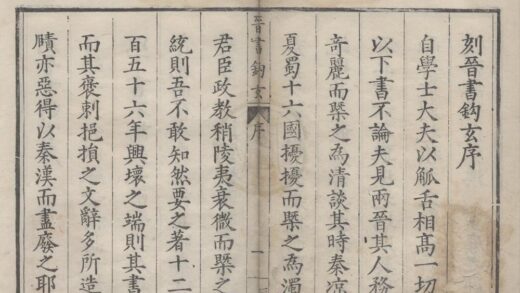 刻晉書鈎玄序
自學士大夫以觚舌相髙一切
以下書不論夫見兩晉其人務
竒麗而槩之為清談其時秦凉
夏蜀十六國擾擾而槩之為濁
晉書鈎玄
序
一
君臣政教稍陵夷衰微而槩之
統則吾不敢知然要之著十二
百五十六年興壞之端則其書
而其褒刺挹損之文辭多所造
賾亦惡得以秦漢而盡廢之耶